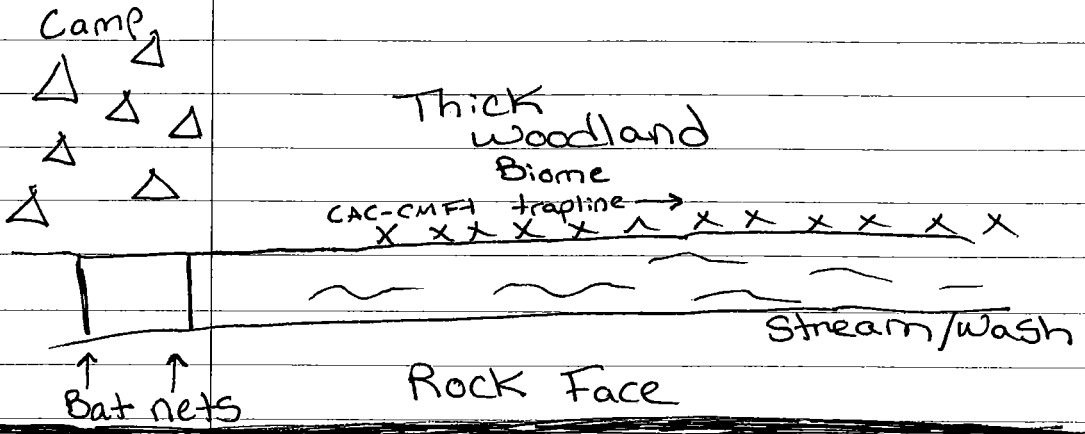 Camp
Thick
Woodland
Biome
CAC-CMFT trapline
Stream/Wash
Bat nets
Rock Face